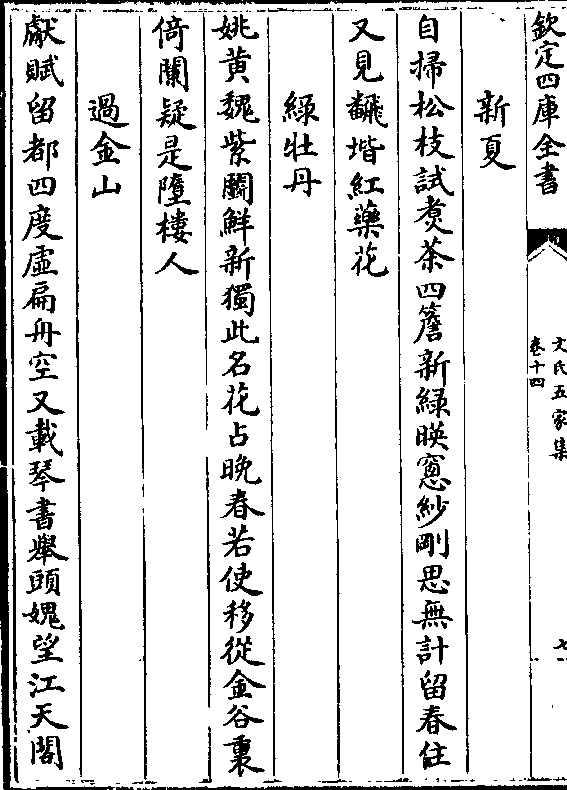 欽定四庫全書
文氏五家集
卷十四
七
新夏
自掃松枝試煑茶四簷新緑暎窓紗剛思無計留春住
又見飜堦紅藥花
緑牡丹
姚黄魏紫鬭鮮新獨此名花占晩春若使移從金谷裏
倚闌疑是墮樓人
過金山
獻賦留都四度虛扁舟空又載琴書舉頭媿望江天閣